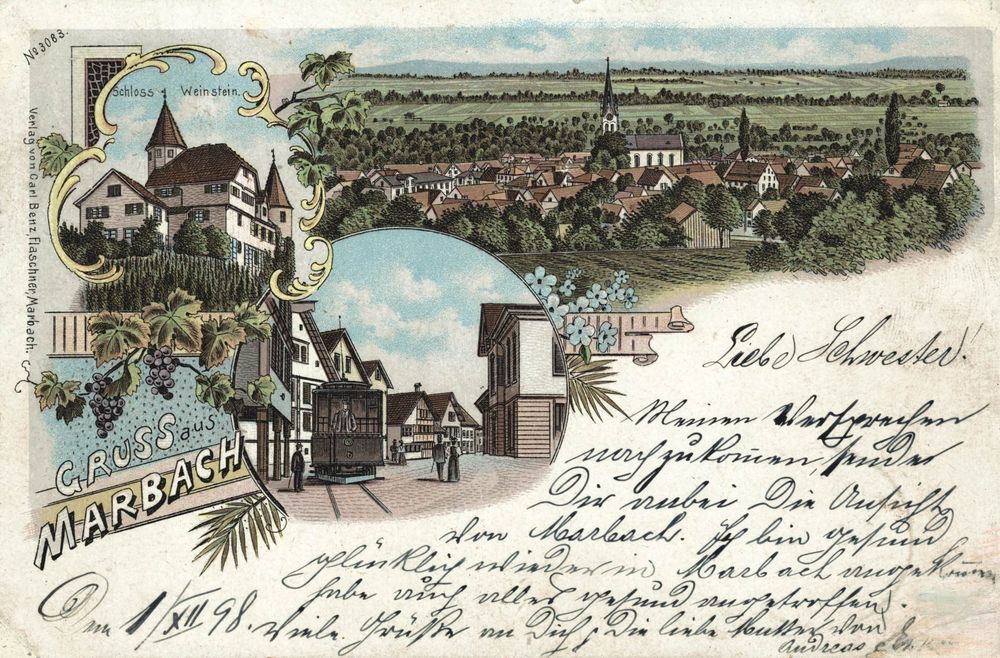 No 3083.
Schloss Weinstein.
Verlag von Carl Benz, Flaschner, Marbach.
GRUSS aus
MARBACH
Liebe Schwester!
Meinen Versprechen
nachzukommen, sende
Dir anbei Die Ansicht
von Marbach. Ich bin gesund
glücklich wieder in Marbach angekommen
habe auch alles gesund angetroffen.
Den 1/XII 98. Viele Grüße an Dich, Die liebe Mutter von
Andreas